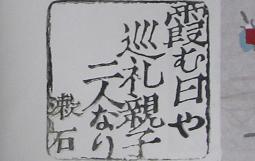 霞む日や
巡礼親子
二人なり
漱石